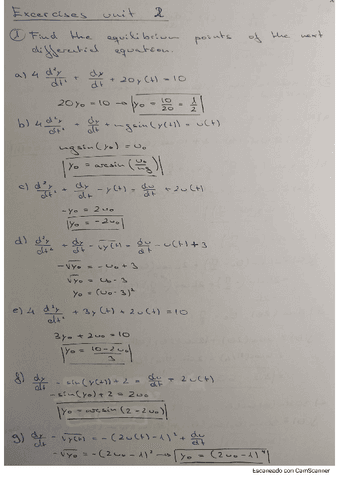 Excercises unit 2
① Find the equilibrium points of the next
differential equation.
a) 4 d²y/dt² + dy/dt + 20y(t) = 10
20y₀ = 10 → y₀ = 10/20 = 1/2
b) 4 d²y/dt² + dy/dt + mgsin(y(t)) = u(t)
mgsin(y₀) = u₀
y₀ = arcsin(u₀/mg)
c) d²y/dt² + dy/dt - y(t) = du/dt + 2u(t)
-y₀ = 2u₀
y₀ = -2u₀
d) d²y/dt² + dy/dt - √y(t) = du/dt - u(t) + 3
-√y₀ = -u₀ + 3
√y₀ = u₀ - 3
y₀ = (u₀ - 3)²
e) 4 d²y/dt² + 3y(t) + 2u(t) = 10
3y₀ + 2u₀ = 10
y₀ = (10 - 2u₀)/3
f) dy/dt - sin(y(t)) + 2 = du/dt + 2u(t)
-sin(y₀) + 2 = 2u₀
y₀ = arcsin(2 - 2u₀)
g) dy/dt - √y(t) = -(2u(t) - 1)² + du/dt
-√y₀ = -(2u₀ - 1)² → y₀ = (2u₀ - 1)⁴
Escaneado con CamScanner